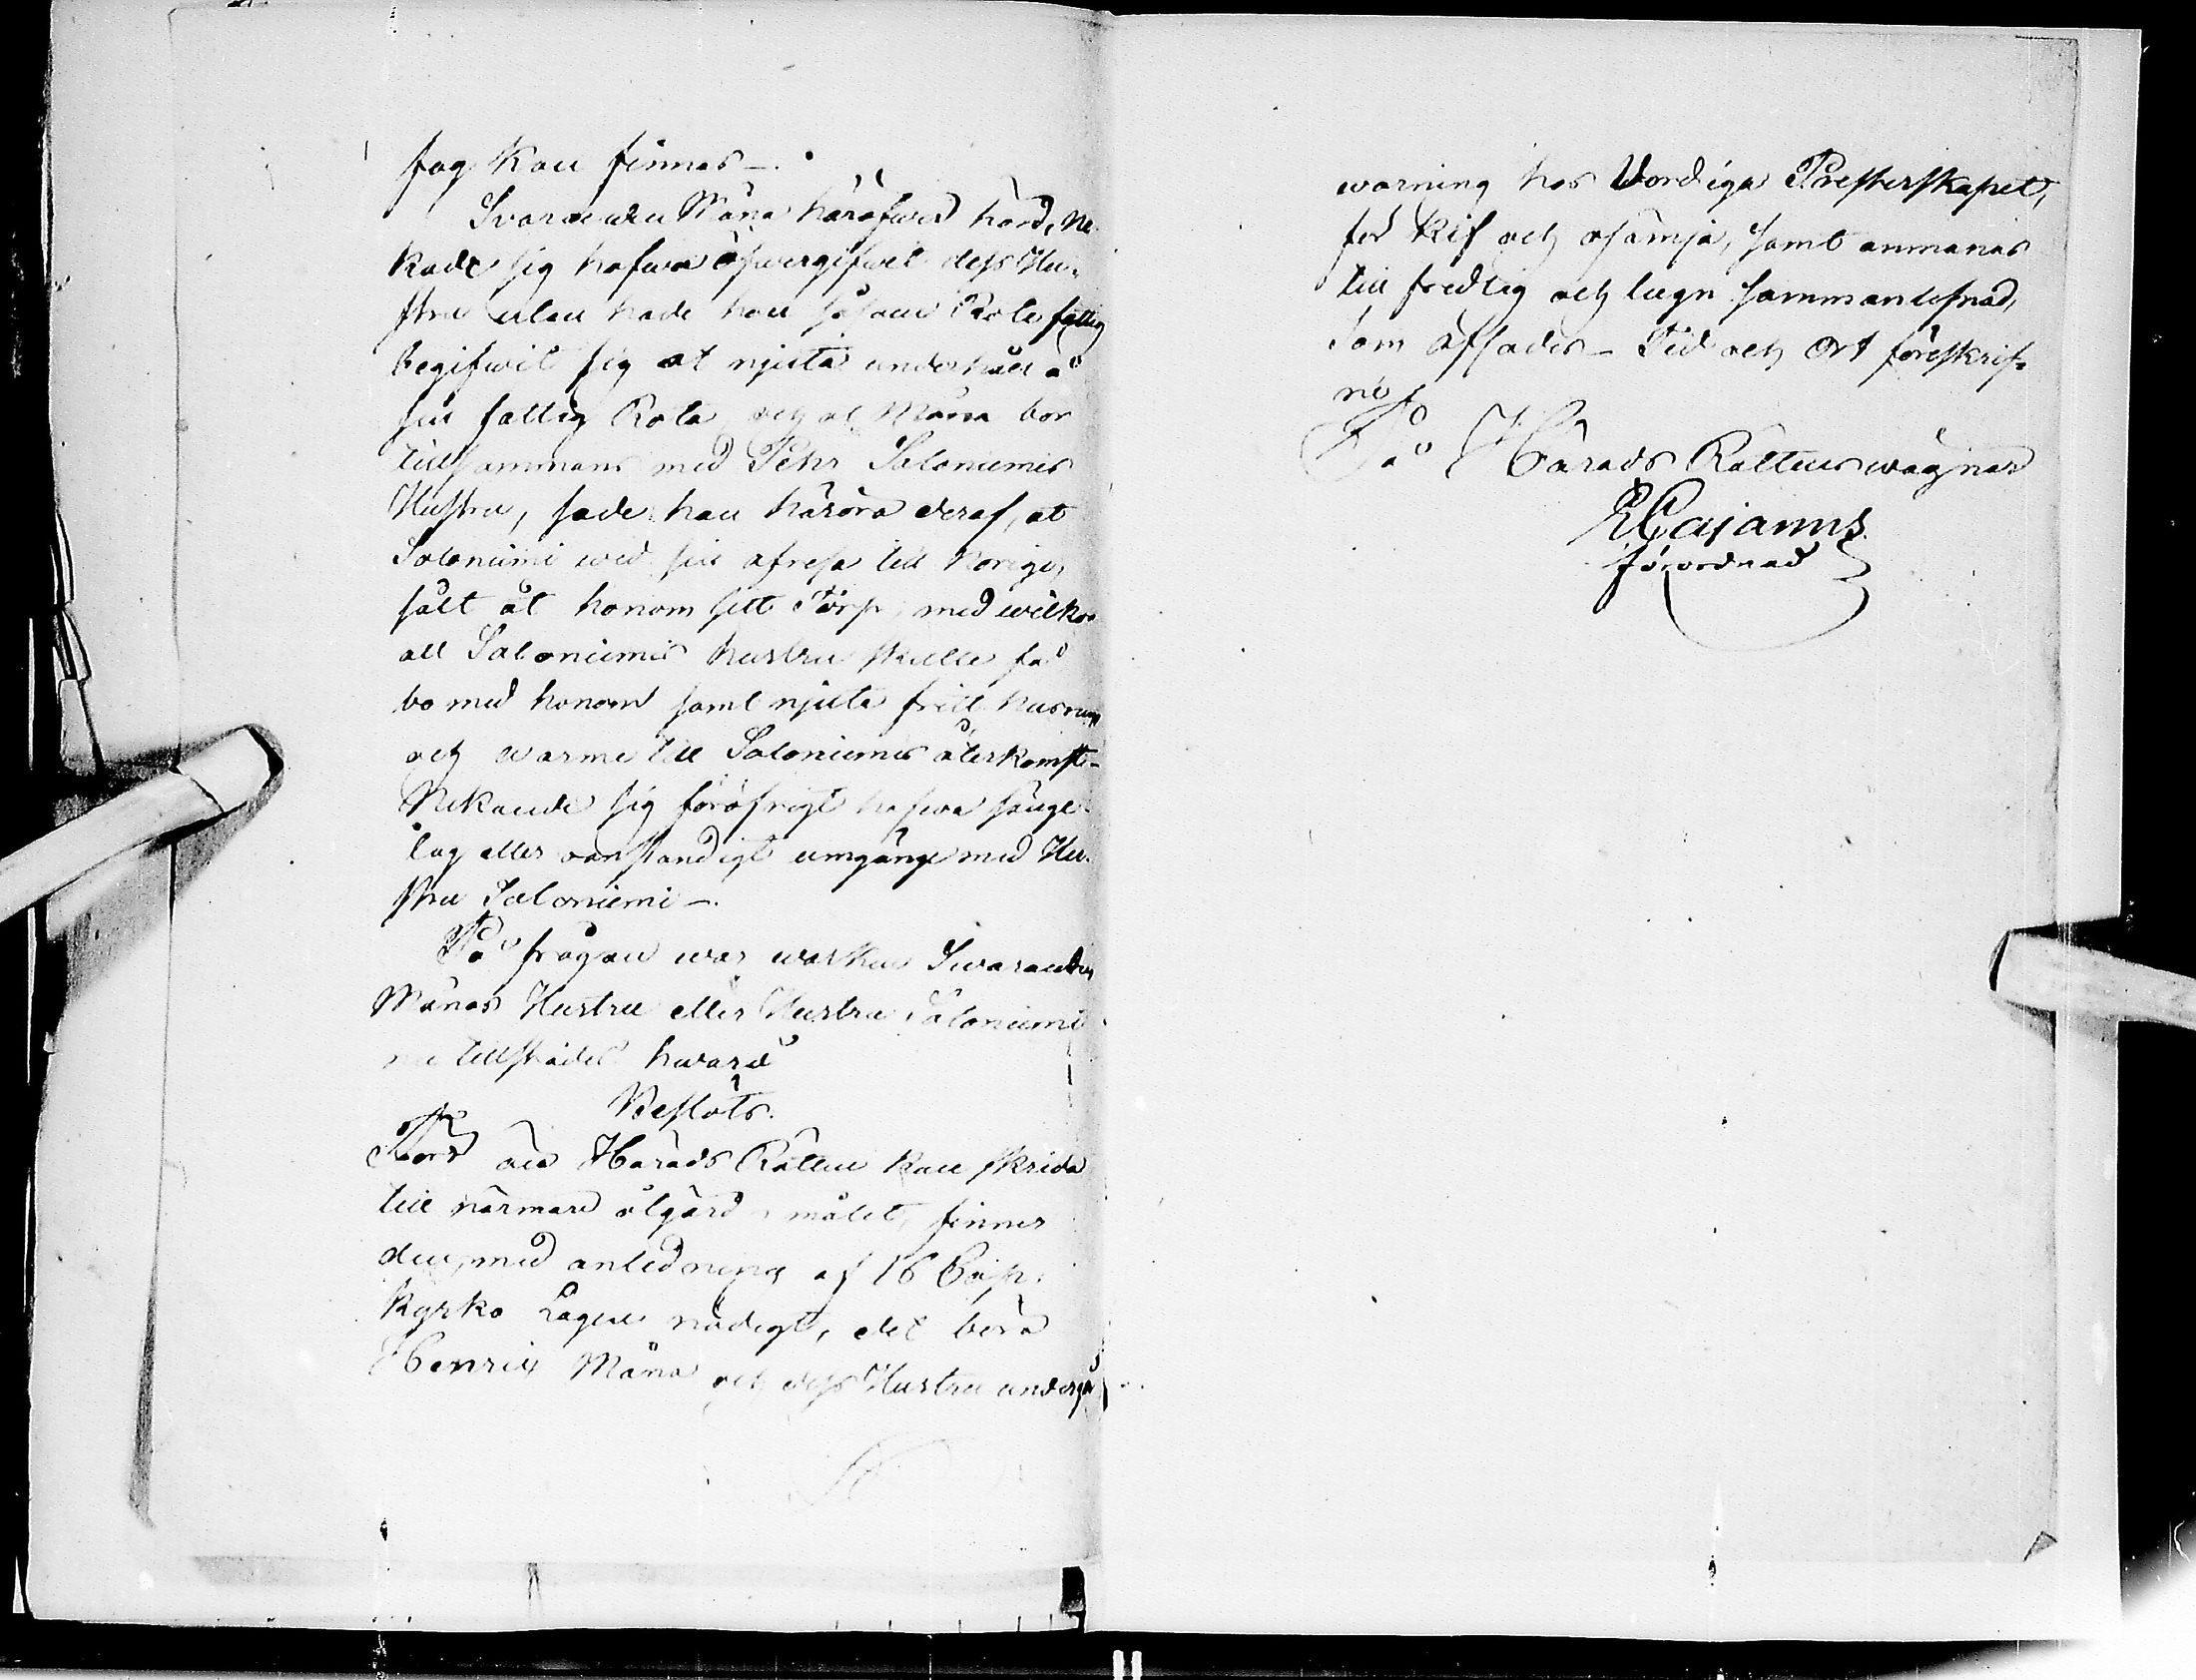 sag kan finnas —.
Svaranden Mäna häröfwer hörd, ne-
kade sig hafwa öfwergifwit dess Hu-
stru utan hade hon såsom Rote fattig
begifwit sig at njuta underhåll å
sin fattig Rota och at Mäna bor
tillsammans med Pehr Saloniemis
Hustru, sade han härröra deraf, at
Saloniemi wid sin afresa till Norige,
sålt åt honom sitt Torp, med wilkor
att Saloniemis hustru skulle få
bo med honom samt njuta fritt husrum
och warme till Saloniemis återkomst —
Nekande sig föröfrigt hafwa sänge-
lag eller oanständigt umgänge med Hu-
stru Saloniemi —.
På frågan war warken Swaranden
Mänas Hustru eller Hustru Saloniemi
nu tillstädes hwarå
Beslöts.
Förr än Härads Rätten kan skrida
till närmare åtgärd i målet, finner
den, med anledning af 16 Cap.
Kyrko Lagen nödigt, det böra
Henric Mäna och dess Hustru undergå
warning hos Wordiga Presterskapet,
för kif och osämja, samt anmanas
till fredlig och lugn sammanlefnad,
Som afsades — Tid och Ort föreskrif-
ne
På Härads Rättens wägnar
E Cajanus
förordnad